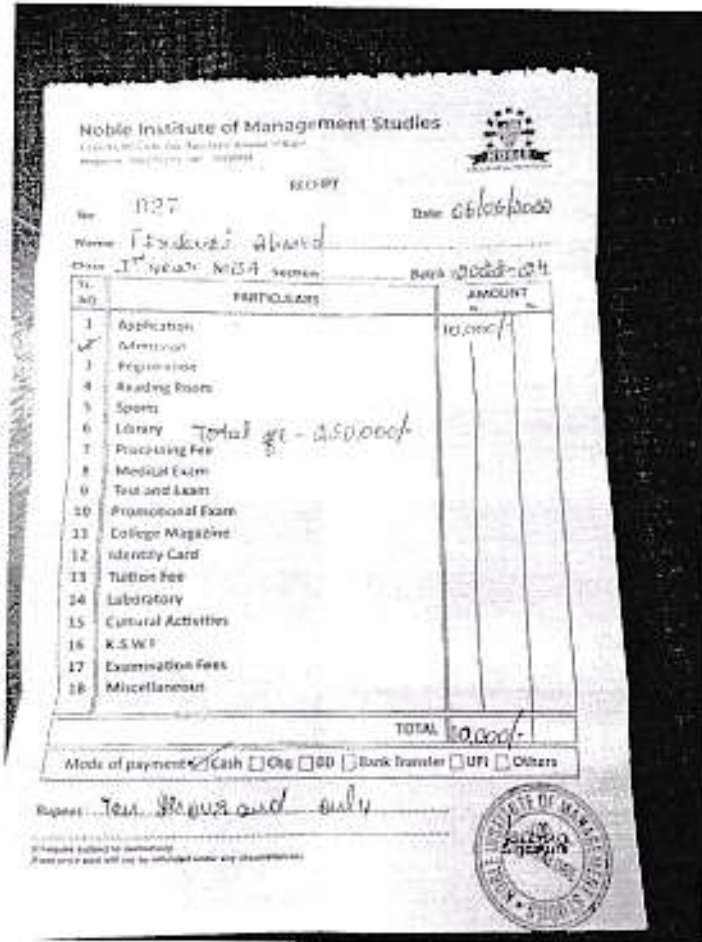 Noble Institute of Management Studies
NOBLE
RECEIPT
No 027
Date 06/06/
Name Ahmed
Class Ist year MBA Section Batch -24
SL NO PARTICULARS AMOUNT
1 Application 10,000/-
2 Admission
3 Registration
4 Reading Room
5 Sports
6 Library Total - 250,000/-
7 Processing Fee
8 Medical Exam
9 Test and Exam
10 Promotional Exam
11 College Magazine
12 Identity Card
13 Tuition Fee
14 Laboratory
15 Cultural Activities
16 K.S.W.F
17 Examination Fees
18 Miscellaneous
TOTAL 10,000/-
Mode of payment Cash Chq DD Bank Transfer UPI Others
Rupees Ten thousand only
NOBLE INSTITUTE OF MANAGEMENT STUDIES